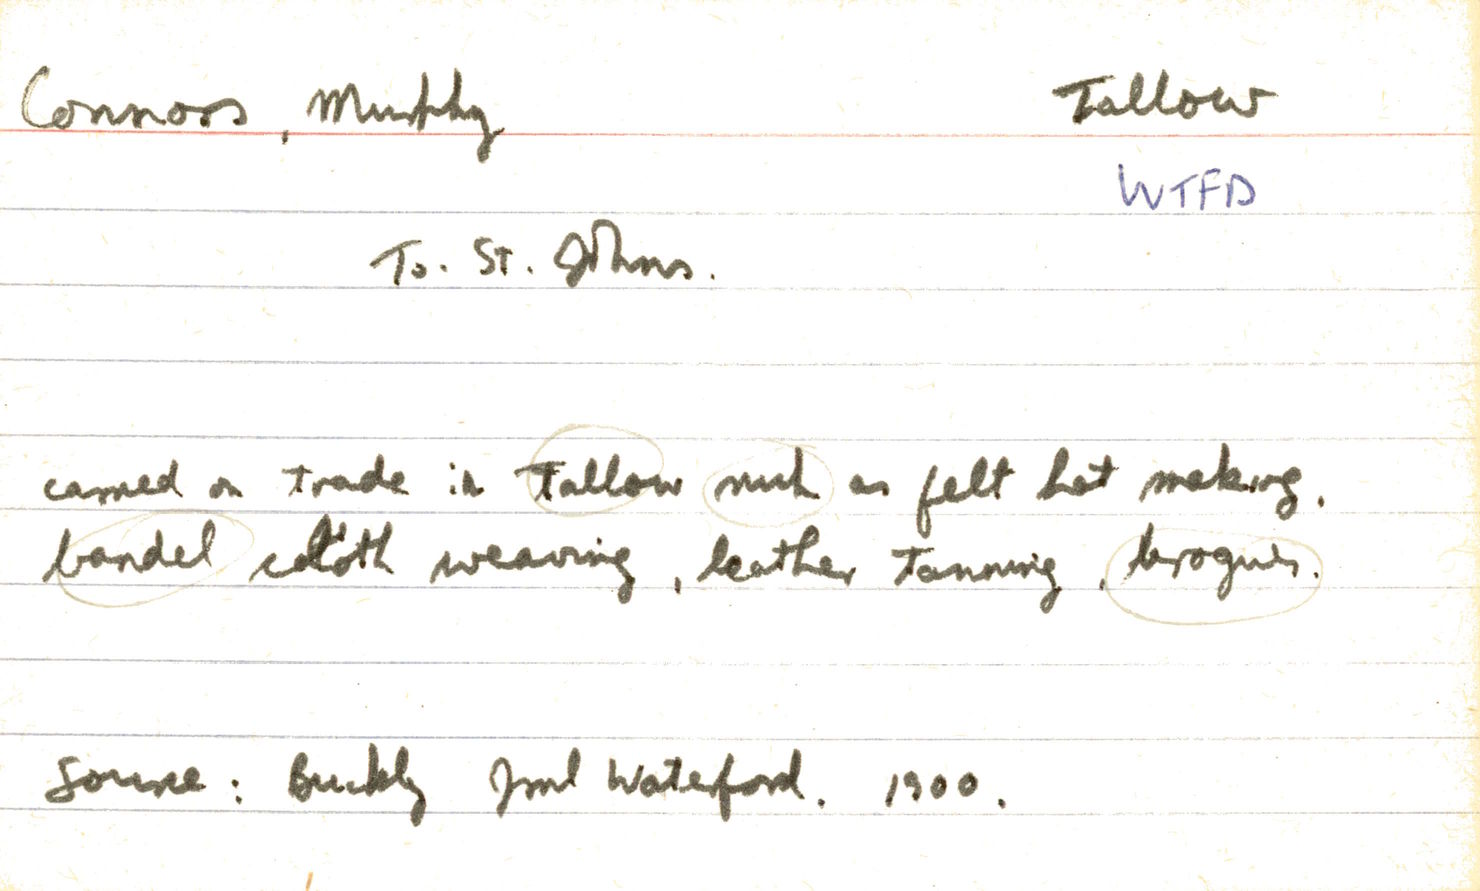 Connors, Murphy Tallow
WTFD
To. St. Johns.
carried on trade in Tallow such as felt hat making,
bandel cloth weaving, leather Tanning, brogues.
Source: Buckly Jnl Waterford. 1900.